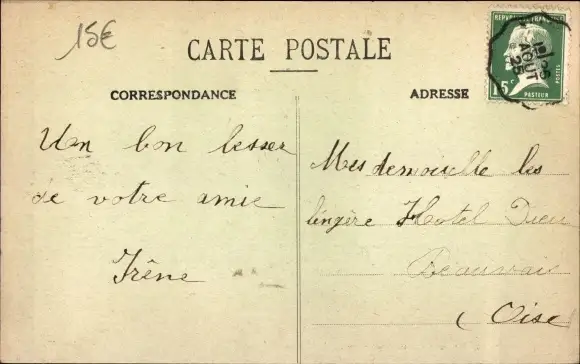 15€
CARTE POSTALE
CORRESPONDANCE
ADRESSE
REPUBLIQUE FRANÇAISE
POSTES
15c
PASTEUR
AOUT
25
Un bon besser
de votre amie
Irêne
Mesdemouselle les
lingère Hotel Dieu
Beauvais
Oise